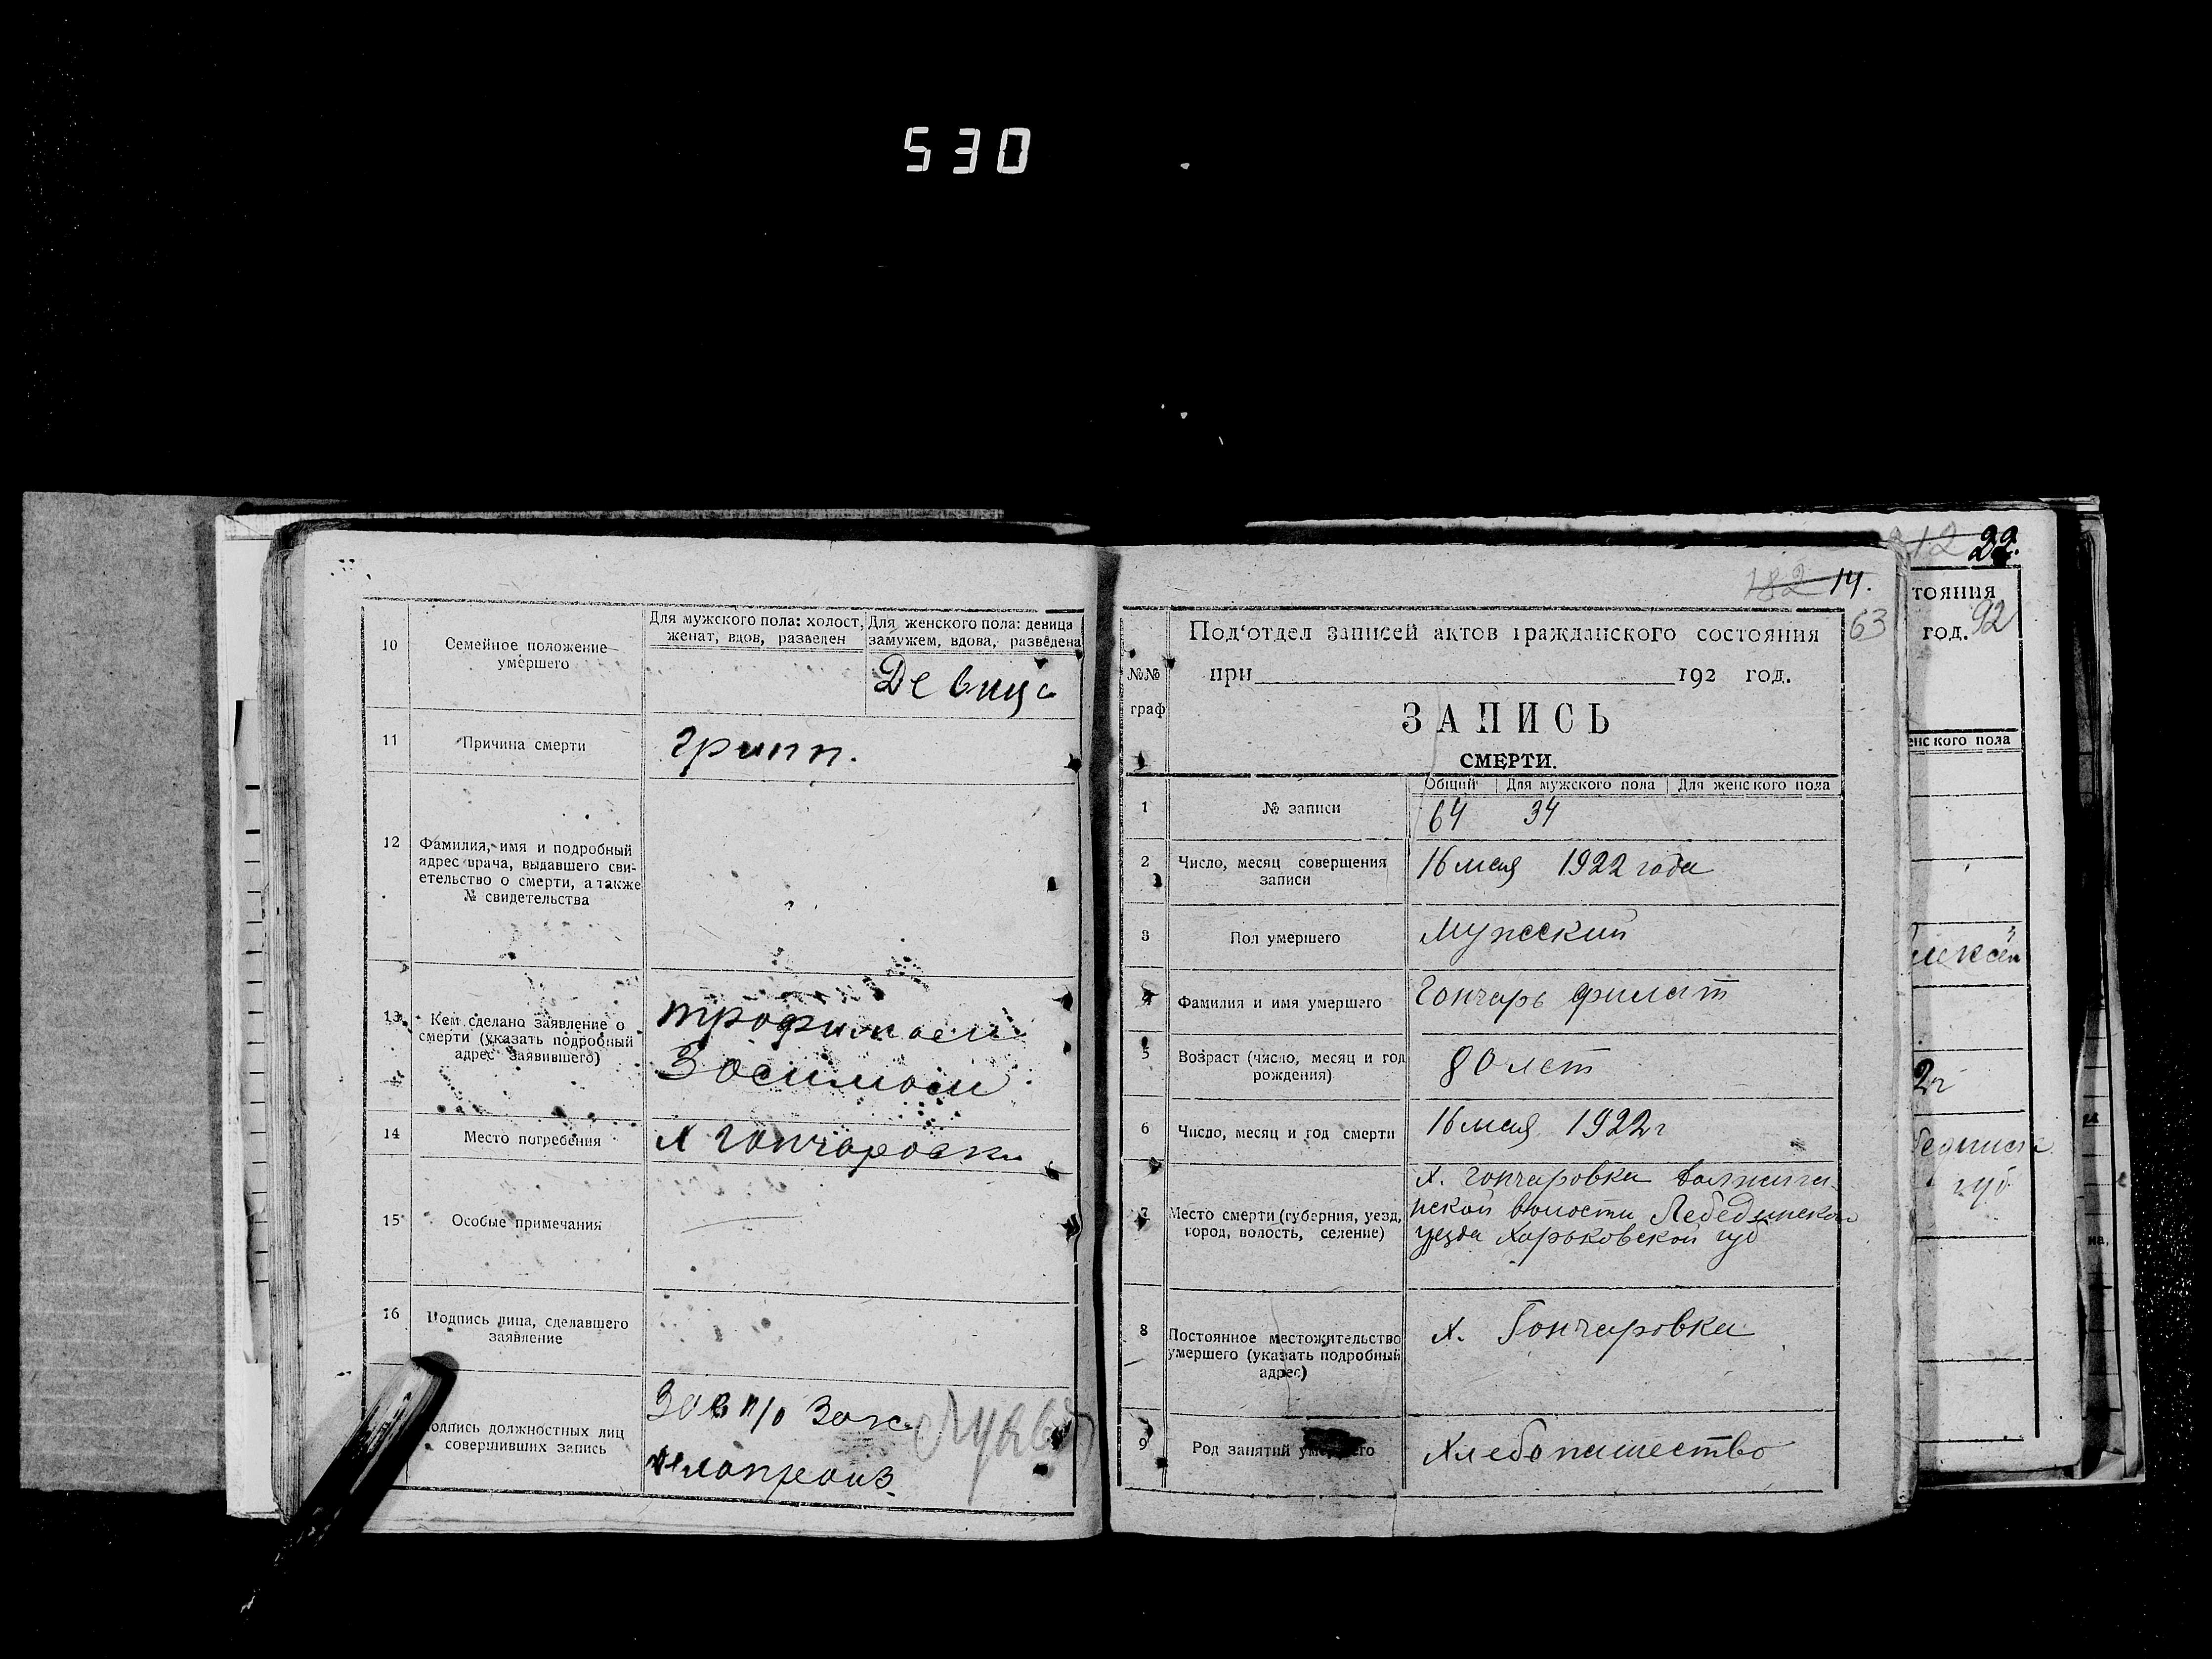 530
10
Семейное положение
умершего
Для мужского пола: холост,
женат, вдов, разведен
Для женского пола: девица
замужем, вдова, разведена
Девица
11
Причина смерти
грипп.
12
Фамилия, имя и подробный
адрес врача, выдавшего сви-
етельство о смерти, а также
№ свидетельства
13
Кем сделано заявление о
смерти (указать подробный
адрес заявившего)
14
Место погребения
15
Особые примечания
16
Подпись лица, сделавшего
заявление
одпись должностных лиц
совершивших запись
Зав п/о
делопроиз.
182 14.
63
№№
граф
Под‘отдел записей актов гражданского состояния
при 192 год.
ЗАПИСЬ
СМЕРТИ.
Общий Для мужского пола Для женского пола
1
№ записи
64 34
2
Число, месяц совершения
записи
16 мая 1922 года
3
Пол умершего
Мужеский
4
Фамилия и имя умершего
Гончарь Филат
5
Возраст (число, месяц и год
рождения)
80 лет
6
Число, месяц и год смерти
16 мая 1922 г
7
Место смерти (губерния, уезд,
город, волость, селение)
х. Гончаровка
нской волости Лебединского
уезда Харьковской губ
8
Постоянное местожительство
умершего (указать подробный
адрес)
х. Гончаровка
9
Род занятий умершего
Хлебопашество
22.
тояния
год. 92
енского пола
2 г
губ